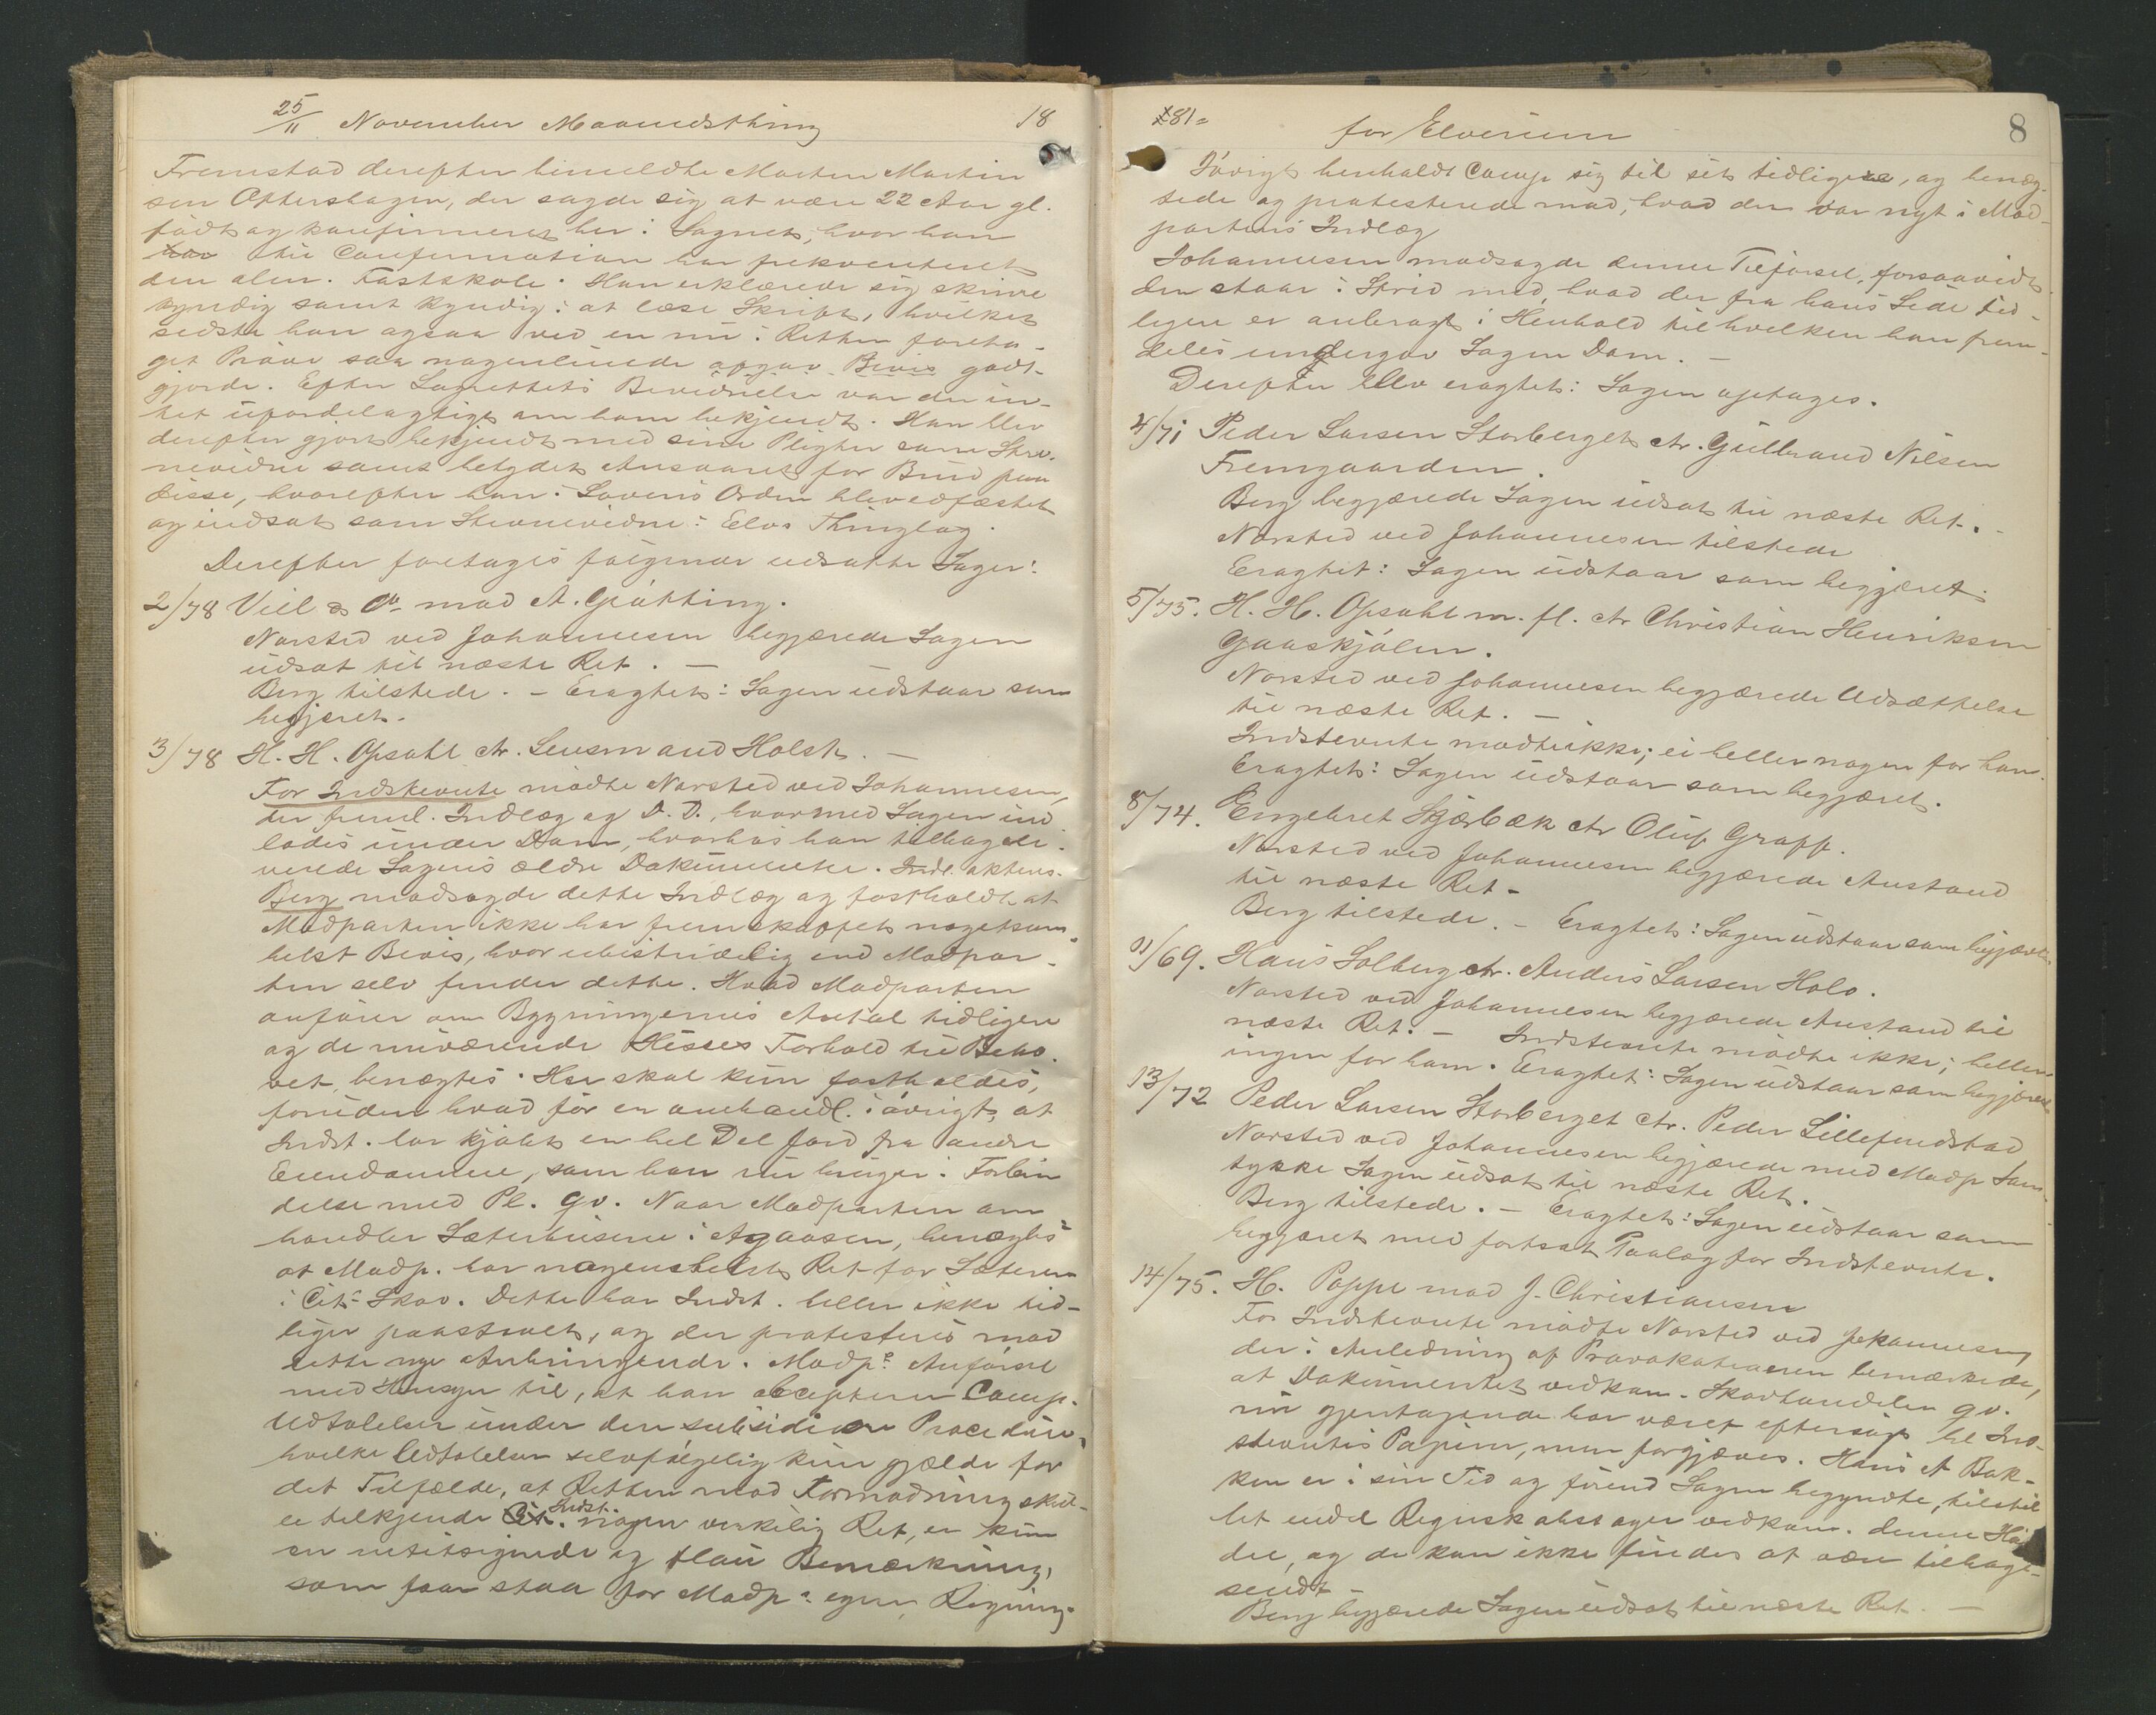 25/11 November Maanedsthing 18
Fremstod derefter bemeldte Morten Martin
sen Ottershagen, der sagde sig at være 22 Aar gl.
född og konfirmeret her i Sognet, hvor han
til Confirmation har frekventeret
den alm. Fastskole. Han erklærede sig skrive
kyndig samt kyndig i at læse Skrift, hvilket
sidste han ogsaa ved en nu i Retten foreta-
get Pröve saa nogenlunde Bevis godt-
gjorde. Efter Lagrettets Bevidnelse var der in-
tet ufordelagtigt om ham bekjendt. Han blev
derefter gjort bekjendt med sine Pligter som Stev-
nevidne samt betydet Ansvaret for Brud paa
disse, hvorefter han i Lovens Orden blev edfæstet
og indsat som Stevnevidne i Elvs Thinglag.
Derefter foretoges fölgende udsatte Sager:
2/78 Viel & Co mod A. Grötting.
Norsted ved Johannesen begjærede Sagen
udsat til næste Ret. —
Berg tilstede. – Eragtet: Sagen udstaar som
begjæret.
3/78 H. H. Opsahl ctr. Lensmand Holst. —
For Indstevnte mödte Norsted ved Johannesen,
der freml. Indlæg og D. D., hvormed Sagen ind
lodes under Dom, hvorhos han tilbagele-
verede Sagens ældre Dokumenter. Indl. aktens.
Berg modsagde dette Indlæg og fastholdt at
Modparten ikke har fremskaffet nogetsom-
helst Bevis, hvor ubestridelig end Modpar-
ten selv finder dette. Hvad Modparten
anförer om Bygningernes Antal tidligere
og de nuværende Huses Forhold til Beho-
vet, benægtes. Her skal kun fastholdes,
foruden hvad för er omhandl. i övrigt, at
Indst. har kjöbt en hel Del Jord fra andre
Eiendomme, som han nu bruger i Forbin
delse med Pl. qv. Naar Modparten om
handler Sæterhusene i Agaasen, benægtes
at Modp. har nogensomhelst Ret for Sæteren
i Cit.s Skov. Dette har Indst. heller ikke tid-
liger paastaaet, og der protesteres mod
dette nye Anbringende. Modp.s Anförsel
med Hensyn til, at han aceptere Comp.
Udtalelser under den subsidiære Procedure,
hvilke Udtalelser selvfölgelig kun gjælde for
det Tilfælde, at Retten mod Formodning skul-
le tilkjende Indst. nogen verkelig Ret, er kun
en intetsigende og flau Bemærkning,
som faar staa for Modp.s egen Regning.
1881 =
for Elverum
8
Iövrigt henholdt Comp. sig til sit tidligere, og benæg-
tede og protesterede mod, hvad der var nyt i Mod-
partens Indlæg
Johannesen modsagde denne Tilförsel, forsaavidt
den staar i Strid med, hvad der fra hans Side tid-
ligere er anbragt i Henhold til hvilken han frem-
deles undergav Sagen Dom. —
Derefter blev eragtet: Sagen optages.
4/71 Peder Larsen Storberget ctr. Gulbrand Nilsen
Fremgaarden.
Berg begjærede Sagen udsat til næste Ret. –
Norsted ved Johannesen tilstede
Eragtet: Sagen udstaar som begjæret.
5/75. H. H. Opsahl m. fl. ctr Christian Henriksen
Gaaskjölen.
Norsted ved Johannesen begjærede Udsættelse
til næste Ret. —
Indstevnte mödte ikke; ei heller nogen for ham.
Eragtet: Sagen udstaar som begjæret.
8/74. Engebret Skjærbæk ctr Oluf Graff.
Norsted ved Johannesen begjærede Anstand
til næste Ret –
Berg tilstede. – Eragtet: Sagen udstaar som begjæret.
11/69. Hans Solberg ctr. Anders Larsen Holo.
Norsted ved Johannesen begjærede Anstand til
næste Ret. – Indstevnte mödte ikke; heller
ingen for ham. Eragtet: Sagen udstaar som begjæret
13/72 Peder Larsen Storberget ctr. Peder Lillefundstad
Norsted ved Johannesen begjærede med Modp Sam-
tykke Sagen udsat til næste Ret.
Berg tilstede. – Eragtet: Sagen udstaar som
begjæret med fortsat Paalæg for Indstevnte.
14/75. H. Poppe mod J. Christiansen
For Indstevnte mödte Norsted ved Johannesen,
der i Anledning af Provokationen bemærkede,
at Dokumentet vedkom. Skovhandelen qv.
nu gjentagende har været eftersögt bl. Ind-
stevntes Papirer, men forgjæves. Hans A Bak-
ken er i sin Tid og förend Sagen begyndte, tilstil
let endel Regnskabssager vedkom. denne Han
del, og de kan ikke findes at være tilbage-
sendt –
Berg begjærede Sagen udsat til næste Ret. —